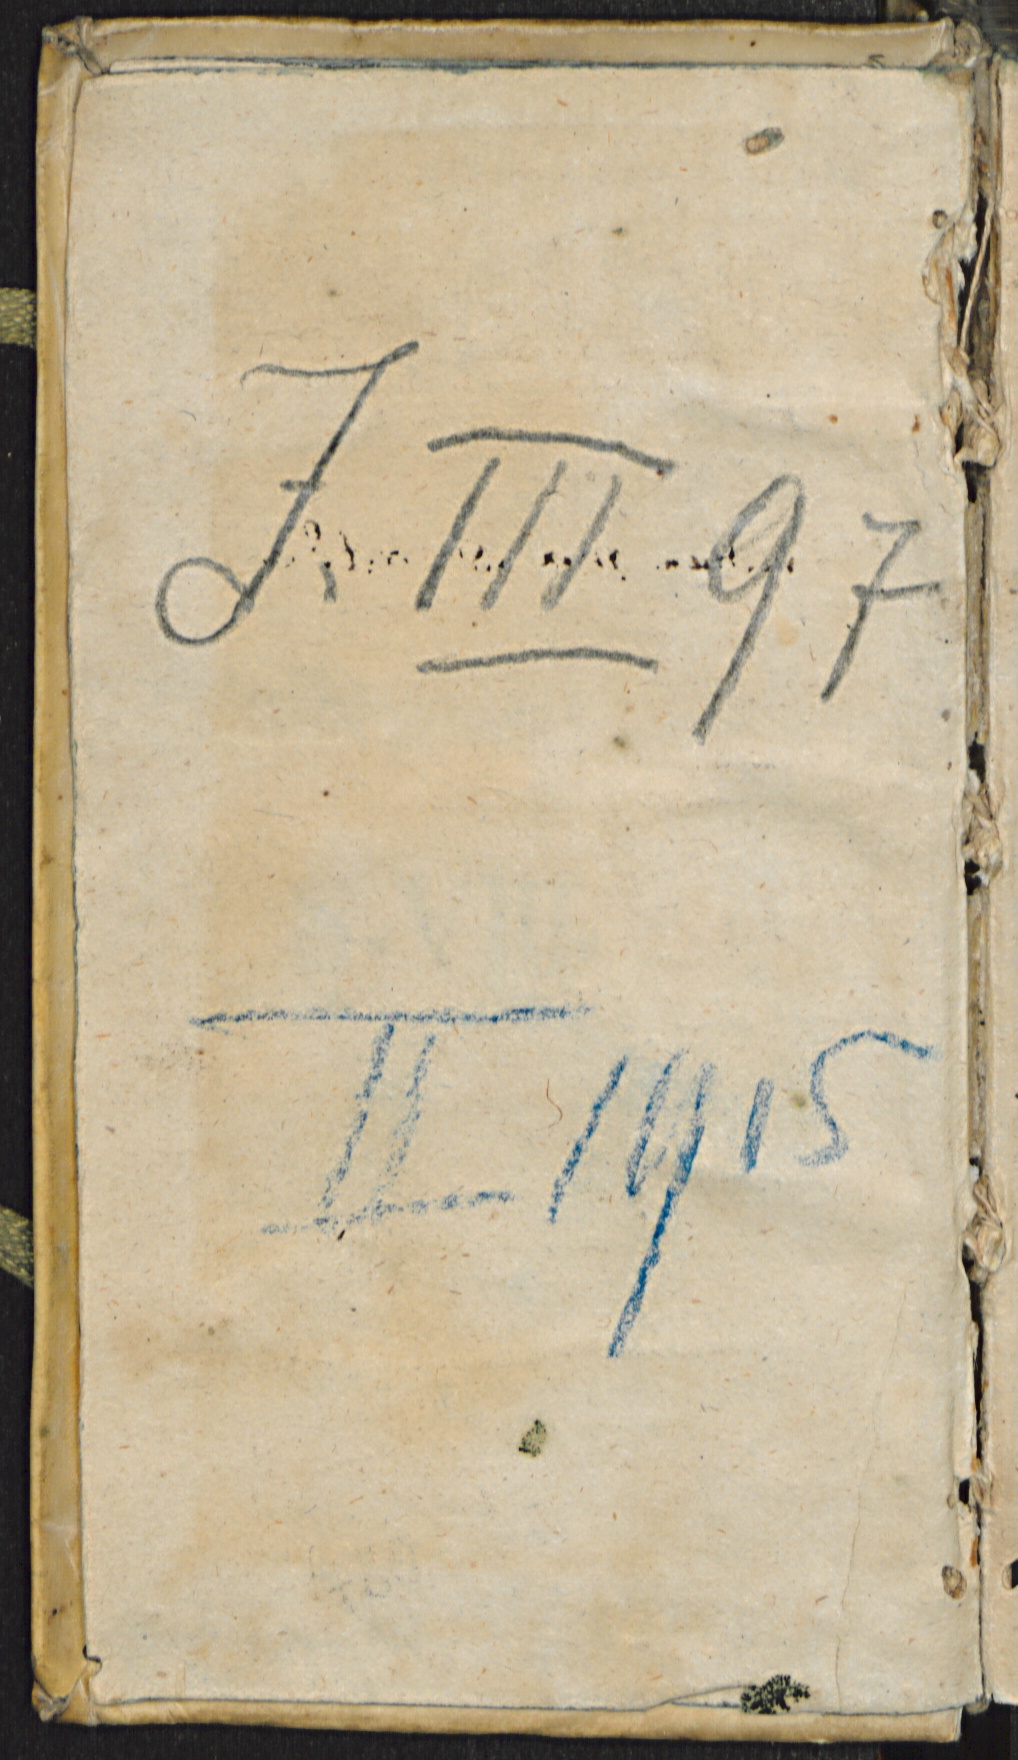 J. III 97
II 1915